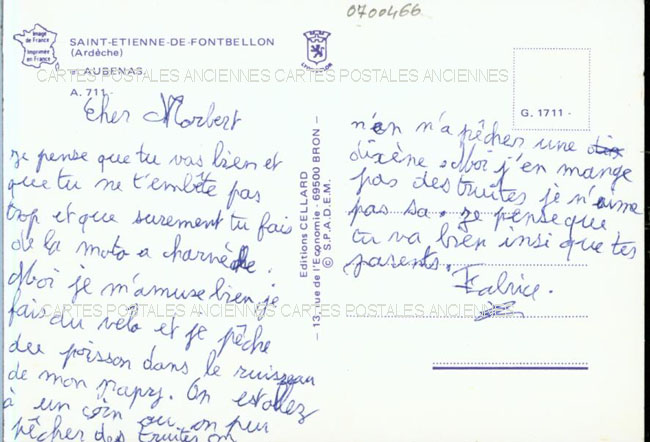 0700466
Image
de France
Imprimée
en France
SAINT-ETIENNE-DE-FONTBELLON
(Ardèche)
AUBENAS
A. 711
LYNCOLOR
G. 1711
CARTES POSTALES ANCIENNES CARTES POSTALES ANCIENNES
Cher Norbert
je pense que tu vas bien et
que tu ne t'embête pas
trop et que surement tu fais
de la moto a
Moi je m'amuse bien, je
fais du velo et je pêche
du poisson dans le ruisseau
de mon papy. On est allez
à un coin ou on peu
pêcher des truites on
Editions CELLARD
– 13, rue de l'Economie - 69500 BRON –
© S.P.A.D.E.M.
n'en n'a pêcher une dix
dixène Moi j'en mange
pas des truites je n'aime
pas sa. je pense que
tu va bien insi que tes
parents.
Fabrice.
CARTES POSTALES ANCIENNES CARTES POSTALES ANCIENNES